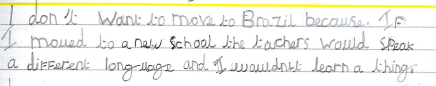 I don't want to move to Brazil because. If
I moved to a new school the tachers would speak
a different long-uage and I wouldn't learn a thing.